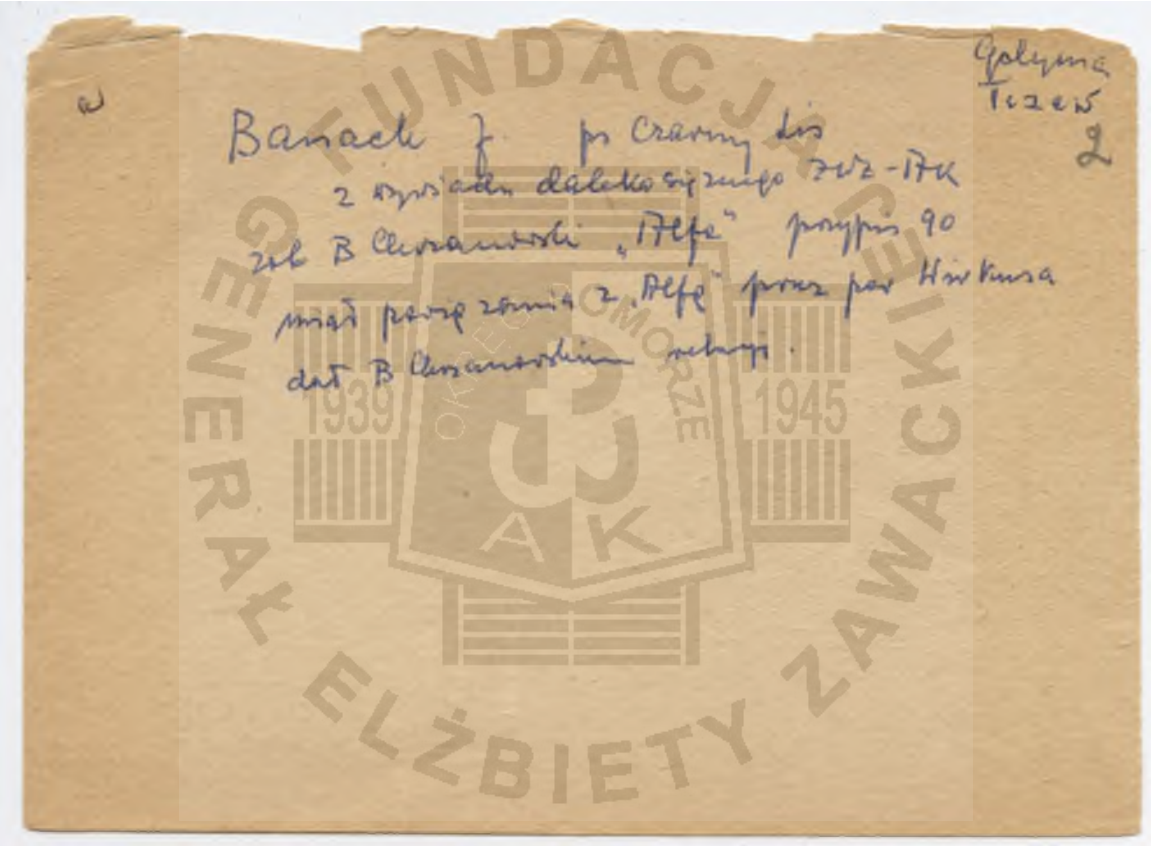 Gdynia
Tczew
2
Banach J. ps Czarny Lis
z wywiadu dalekosiężnego ZWZ-AK
zob B Chrzanowski „Alfa" przypis 90
miał powiązania z „Alfą" przez por Wirkusa
dał B Chrzanowskiemu relację.
FUNDACJA
GENERAŁ ELŻBIETY ZAWACKIEJ
OKRĘG POMORZE
1939
1945
AK